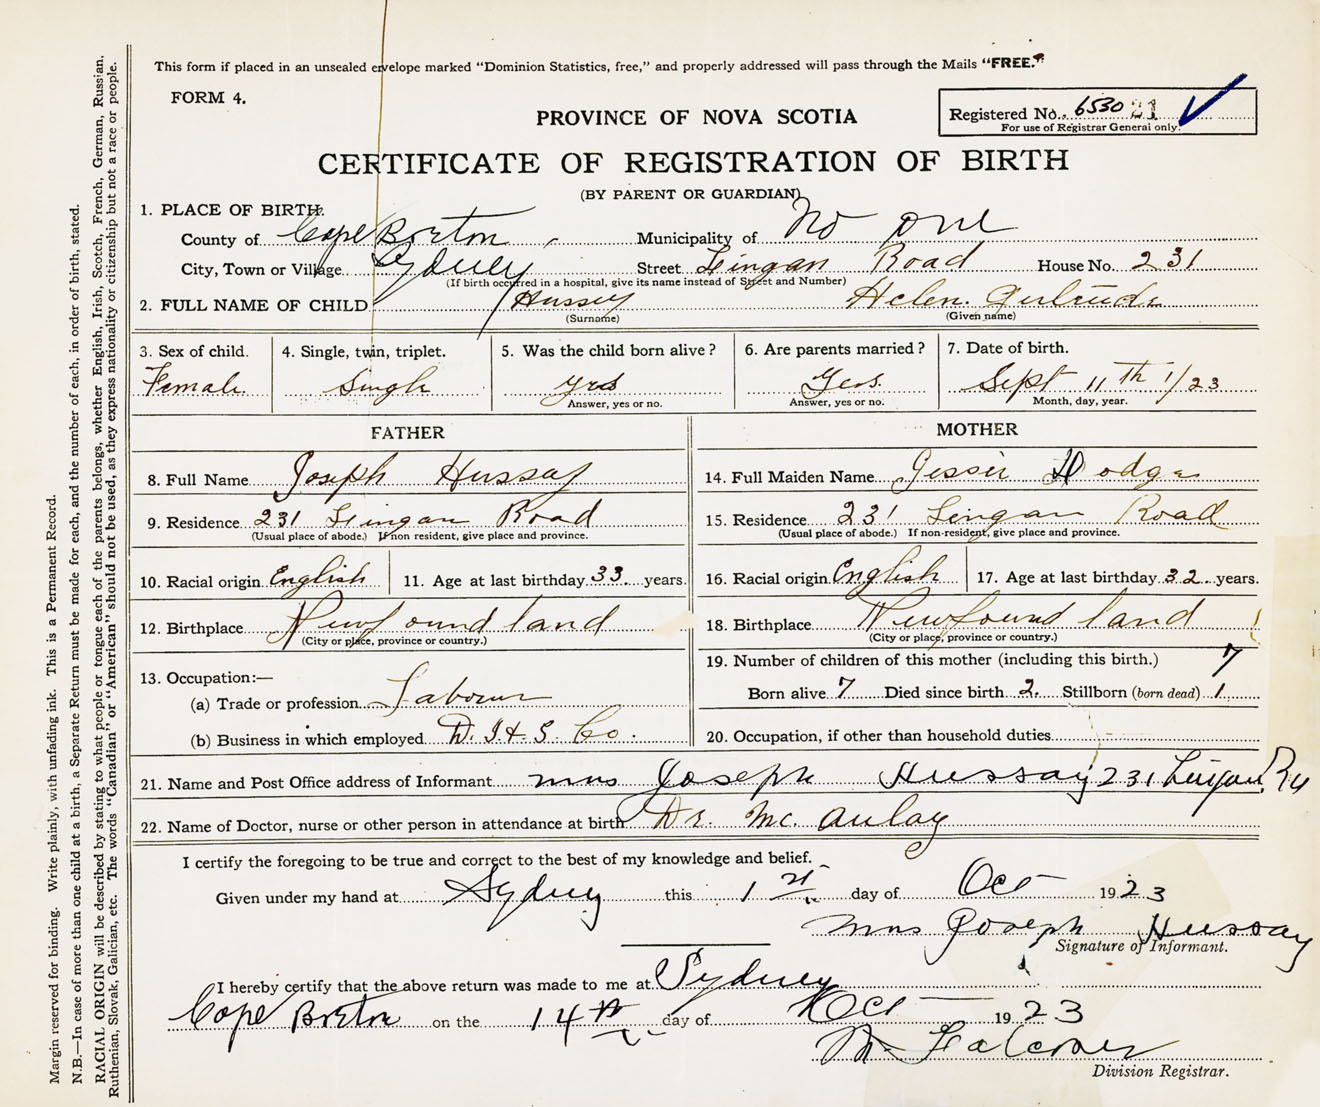 This form if placed in an unsealed envelope marked “Dominion Statistics, free,” and properly addressed will pass through the Mails “FREE.”
FORM 4.
PROVINCE OF NOVA SCOTIA
Registered No. 6530 21
For use of Registrar General only.
CERTIFICATE OF REGISTRATION OF BIRTH
(BY PARENT OR GUARDIAN)
1. PLACE OF BIRTH:
County of Cape Breton Municipality of No one
City, Town or Village Sydney Street Lingan Road House No. 231
(If birth occurred in a hospital, give its name instead of Street and Number)
2. FULL NAME OF CHILD Hussey Helen Gertrude
(Surname) (Given name)
3. Sex of child. 4. Single, twin, triplet. 5. Was the child born alive? 6. Are parents married? 7. Date of birth.
Female Single yes Yes. Sept 11th 1/23
Answer, yes or no. Answer, yes or no. Month, day, year.
FATHER MOTHER
8. Full Name Joseph Hussay 14. Full Maiden Name Jessie Dodge
9. Residence 231 Lingan Road 15. Residence 231 Lingan Road
(Usual place of abode.) If non resident, give place and province. (Usual place of abode.) If non-resident, give place and province.
10. Racial origin English 11. Age at last birthday 33 years. 16. Racial origin English 17. Age at last birthday 32 years.
12. Birthplace Newfoundland 18. Birthplace Newfoundland
(City or place, province or country.) (City or place, province or country.)
19. Number of children of this mother (including this birth.) 7
13. Occupation:—
Born alive 7 Died since birth 2. Stillborn (born dead) 1
(a) Trade or profession Labourer
(b) Business in which employed D. I & S. Co. 20. Occupation, if other than household duties
21. Name and Post Office address of Informant Mrs Joseph Hussay 231 Lingan Rd
22. Name of Doctor, nurse or other person in attendance at birth Dr. Mc. Aulay
I certify the foregoing to be true and correct to the best of my knowledge and belief.
Given under my hand at Sydney this 1st day of Oct 1923
Mrs Joseph Hussay
Signature of Informant.
I hereby certify that the above return was made to me at Sydney
Cape Breton on the 14th day of Oct 1923
Division Registrar.
Margin reserved for binding. Write plainly, with unfading ink. This is a Permanent Record.
N.B.—In case of more than one child at a birth, a Separate Return must be made for each, and the number of each, in order of birth, stated.
RACIAL ORIGIN will be described by stating to what people or tongue each of the parents belongs, whether English, Irish, Scotch, French, German, Russian,
Ruthenian, Slovak, Galician, etc. The words “Canadian” or “American” should not be used, as they express nationality or citizenship but not a race or people.